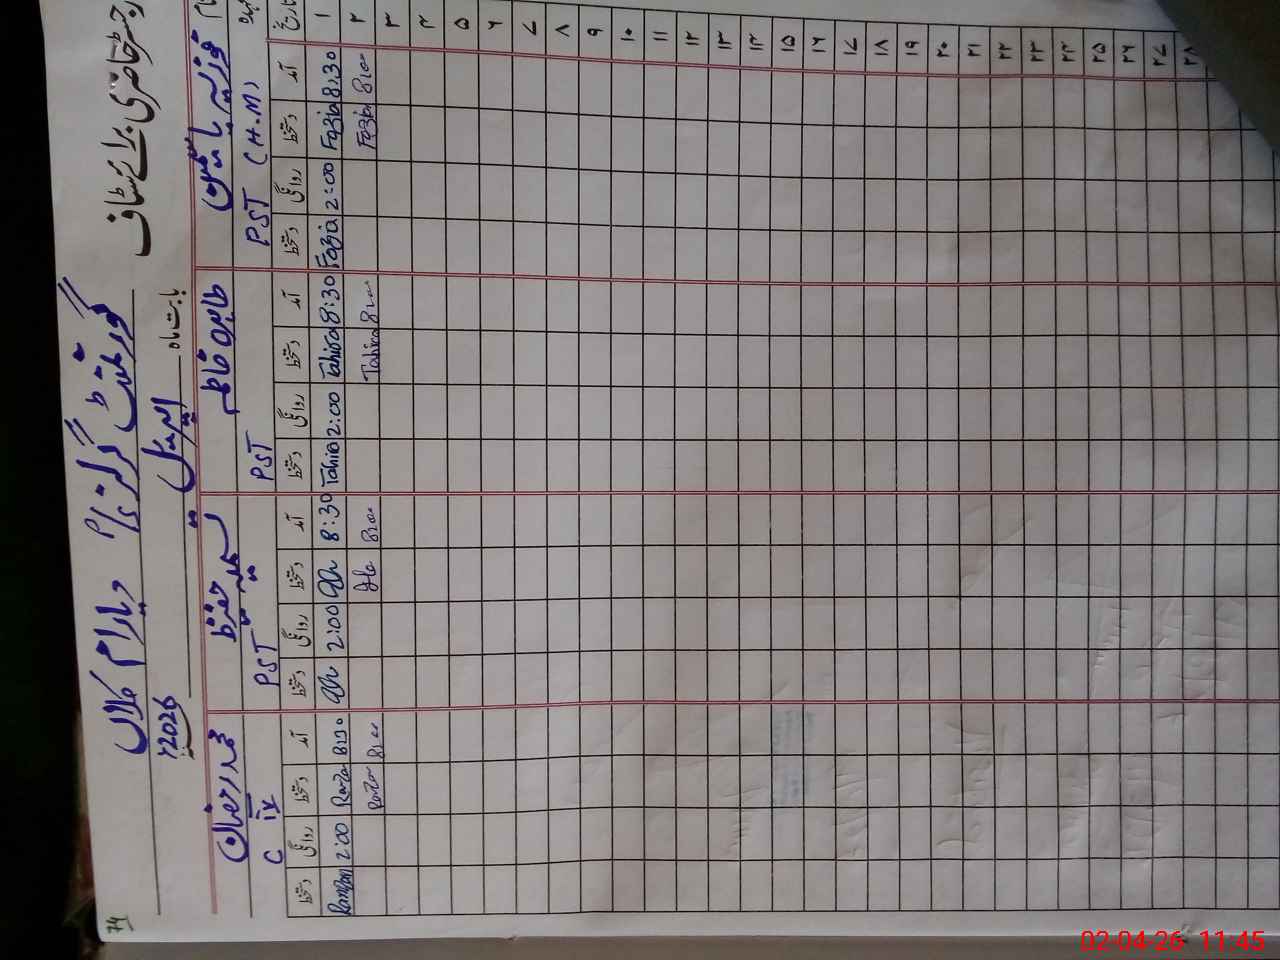 رجسٹر حاضری برائے سٹاف
گورنمنٹ گرلز ہائی دیارام کلاں
بابت ماہ اپریل 2026ء
74
نام فوزیہ یاسمین طاہرہ فاطمہ سمیعہ حفیظ محمد رمضان
عہدہ PST (H.M) PST PST C IV
تاریخ آمد دستخط روانگی دستخط آمد دستخط روانگی دستخط آمد دستخط روانگی دستخط آمد دستخط روانگی دستخط
۱ 8:30 Fozia 2:00 Fozia 8:30 Tahira 2:00 Tahira 8:30 2:00 8:30 Ramzan 2:00 Ramzan
۲ 8:00 Fozia 8:00 Tahira 8:00 8:00
۳
۴
۵
۶
۷
۸
۹
۱۰
۱۱
۱۲
۱۳
۱۴
۱۵
۱۶
۱۷
۱۸
۱۹
۲۰
۲۱
۲۲
۲۳
۲۴
۲۵
۲۶
۲۷
۲۸
02-04-26 11:45